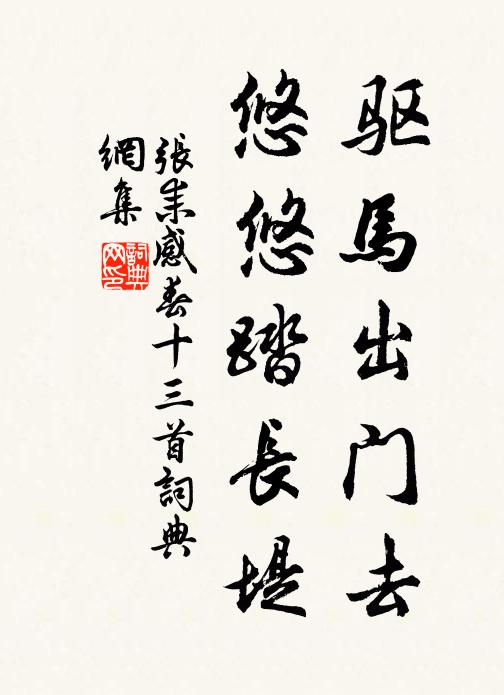 驱馬出门去
悠悠踏長堤
張耒感春十三首詞典
網集
詞典
网印